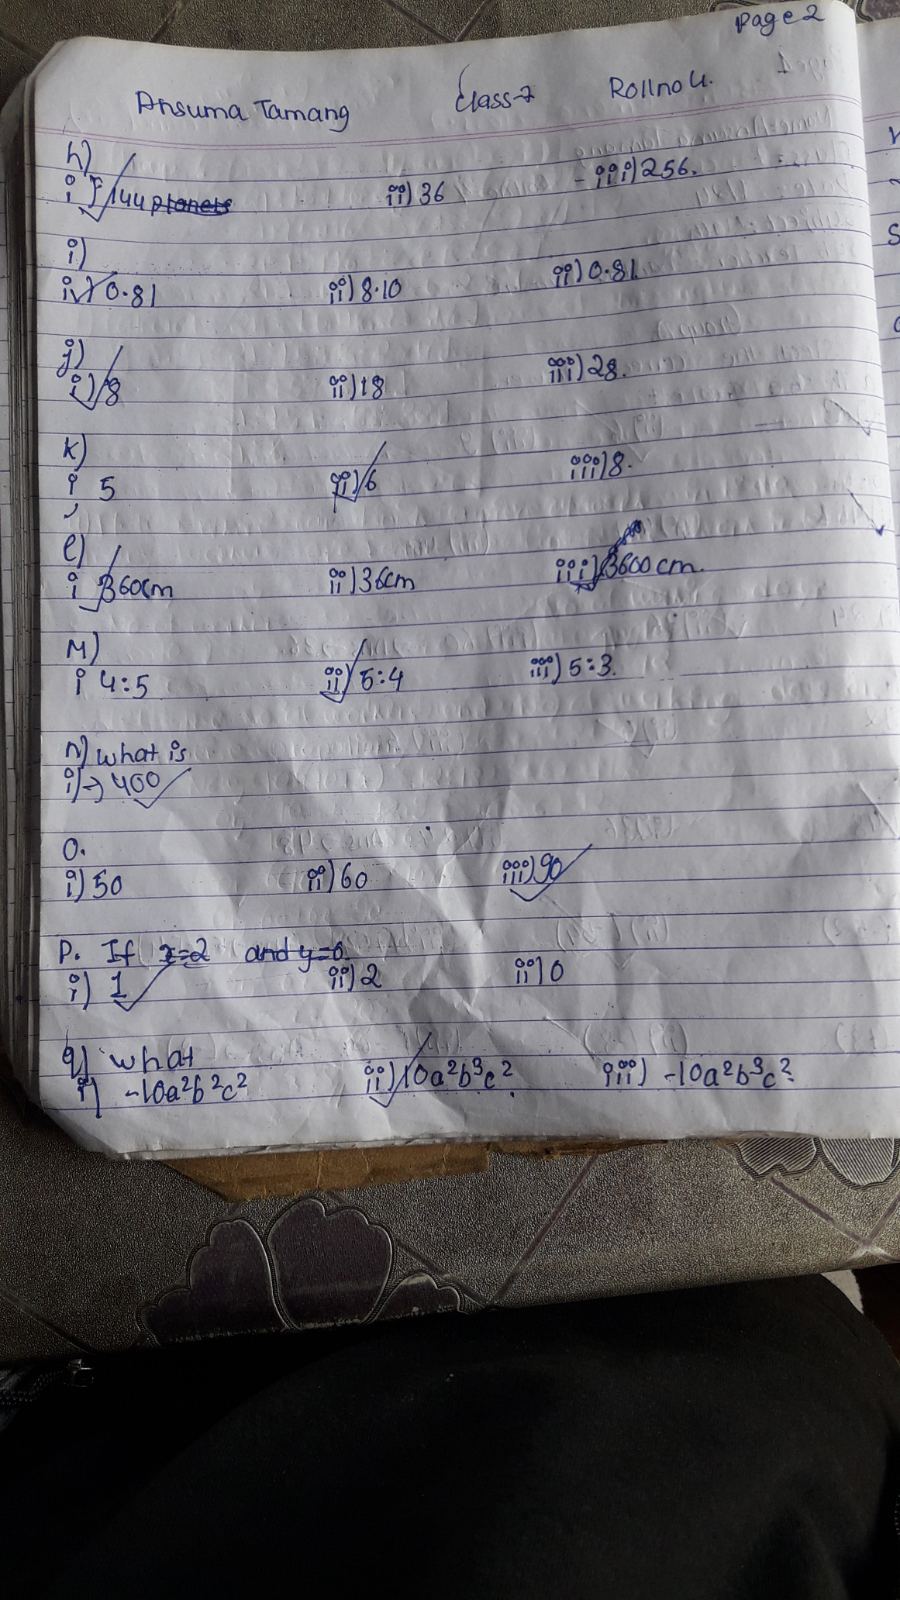 Page 2
Ansuma Tamang Class-7 Rollno 4.
h)
i) 144 planets ii) 36 iii) 256.
i)
i) 0.81 ii) 8.10 ii) 0.81
j)
i) 8 ii) 18 iii) 28.
K)
i 5 ii) 6 iii) 8.
l)
i 360cm ii) 36cm iii) 3600 cm.
M)
i 4:5 ii) 5:4 iii) 5:3.
N) what is
i) → 400
O.
i) 50 ii) 60 iii) 90
P. If x=2 and y=0.
i) 1 ii) 2 ii) 0
q) what
i) -10a²b²c² ii) 10a²b³c² iii) -10a²b³c²